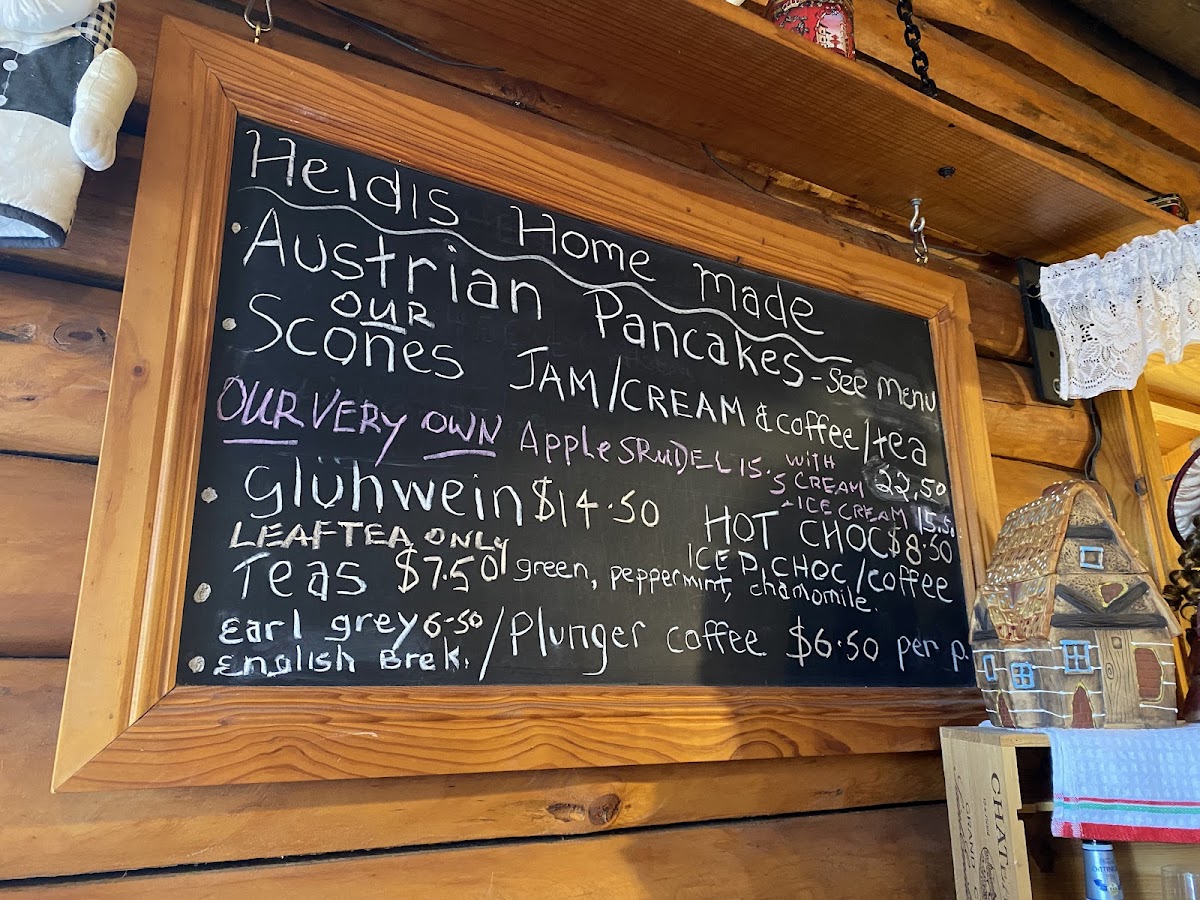 Heidis Home made
Austrian Pancakes - see menu
OUR
Scones JAM/CREAM & coffee/tea
22,50
OUR VERY OWN Apple SRUDEL 15.5
WITH
CREAM
- ICE CREAM 15.5.
Glühwein $14.50 HOT CHOC $8.50
LEAF TEA ONLY ICED CHOC/coffee
Teas $7.50 green, peppermint, chamomile.
Earl grey 6-50 / Plunger coffee $6.50 per p.
English Brek.
CHATE
GRAND